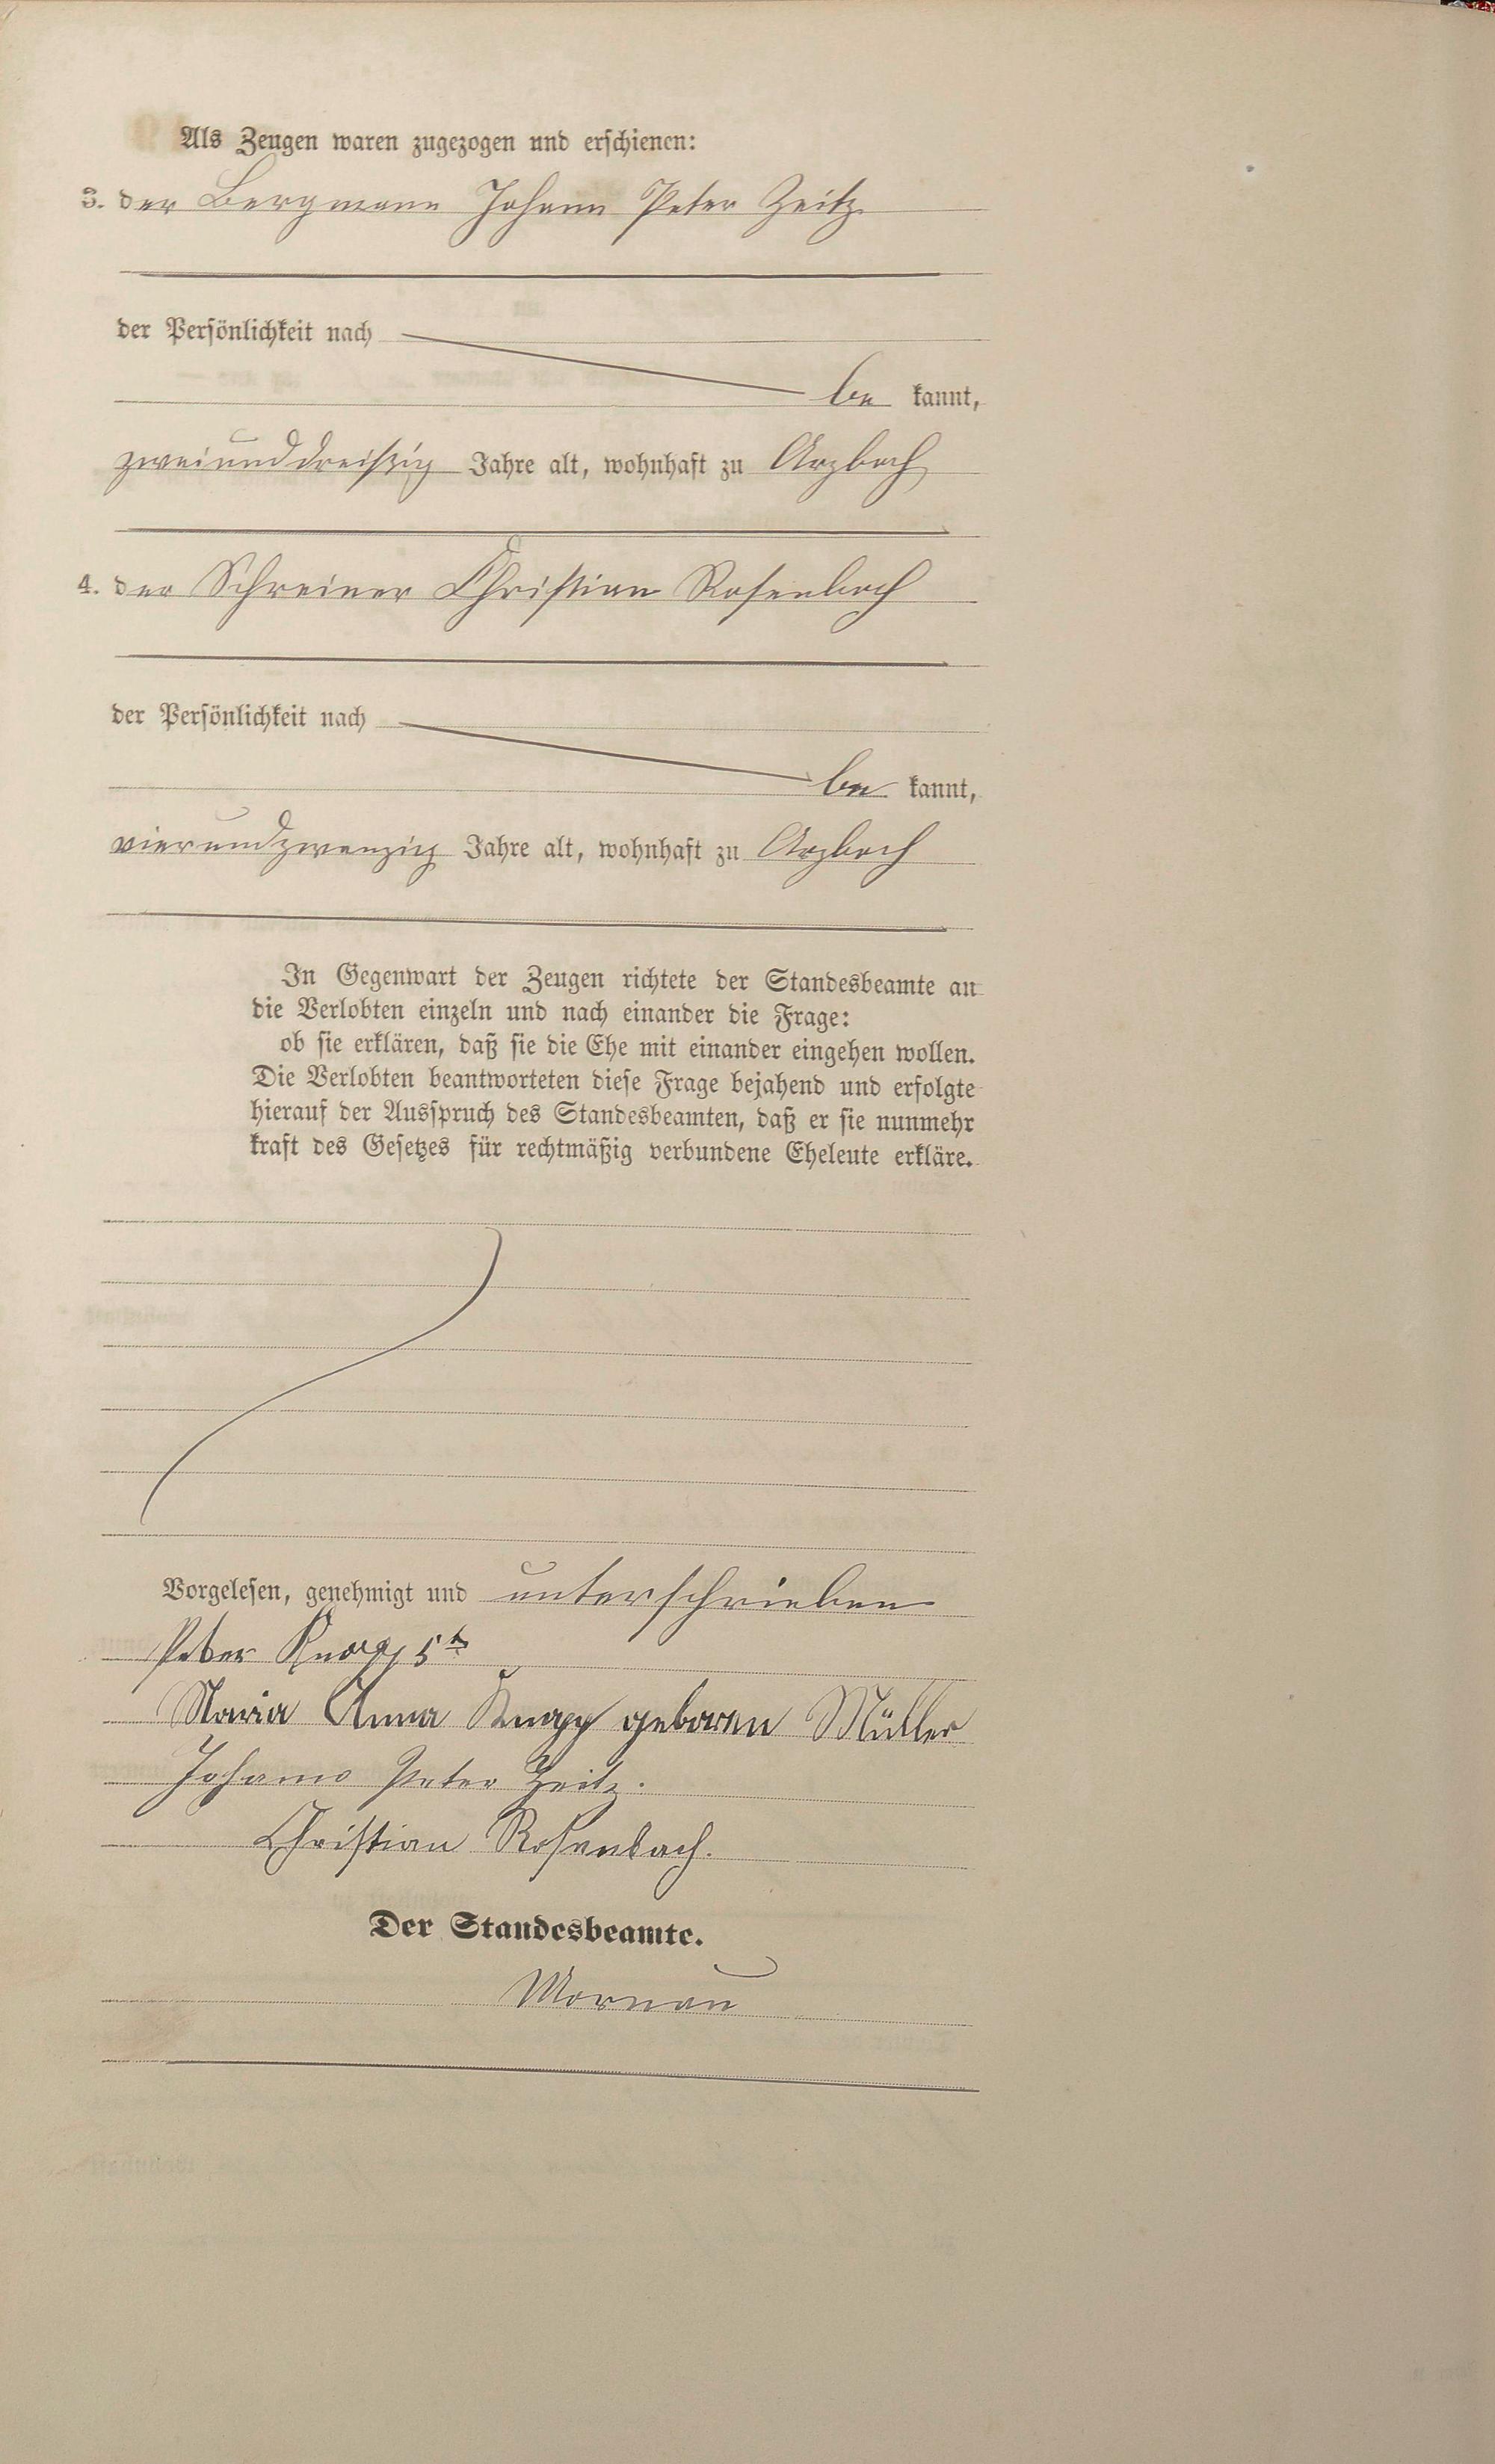 Als Zeugen waren zugezogen und erschienen:
3. der Bergmann Johann Peter Zeitz
der Persönlichkeit nach
be kannt,
zweiunddreißig Jahre alt, wohnhaft zu Arzbach
4. der Schreiner Christian Rosenbach
der Persönlichkeit nach
be kannt,
vierundzwanzig Jahre alt, wohnhaft zu Arzbach
In Gegenwart der Zeugen richtete der Standesbeamte an
die Verlobten einzeln und nach einander die Frage:
ob sie erklären, daß sie die Ehe mit einander eingehen wollen.
Die Verlobten beantworteten diese Frage bejahend und erfolgte
hierauf der Ausspruch des Standesbeamten, daß er sie nunmehr
kraft des Gesetzes für rechtmäßig verbundene Eheleute erkläre.
Vorgelesen, genehmigt und unterschrieben
Peter Knapp 5t
Maria Anna Knapp geboren Müller
Johann Peter Zeitz.
Christian Rosenbach.
Der Standesbeamte.
Mornau